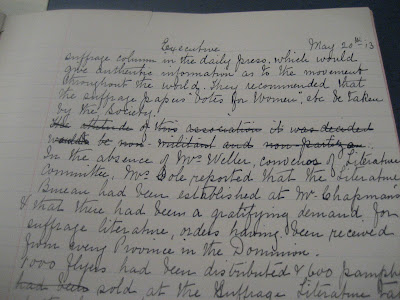 Executive May 20th 13
suffrage column in the daily press, which would
give authentic information as to the movement
throughout the world, they recommended that
the suffrage papers "Votes for Women", etc be taken
by the Society.
The attitude of this association it was decided
would be non-militant and non-partizan.
In the absence of Mrs Weller, convener of Literature
Committee, Mrs Dole reported that the Literature
Bureau had been established at Mr Chapman's
& that there had been a gratifying demand for
suffrage literature, orders having been received
from every Province in the Dominion.
1000 flyers had been distributed & 600 pamph
had been sold at the Suffrage Literature